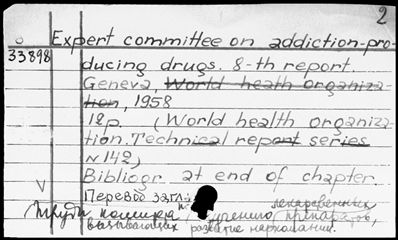 2
Expert committee on addiction-pro-
33898
ducing drugs. 8-th report.
Geneva, World heath organiza-
tion, 1958
18p. (World health organiza-
tion. Technical report series
N 142)
Bibliogr. at end of chapter.
Перевод загл.:
Труды комитета по изучению лекарственных препаратов,
вызывающих развитие наркомании.